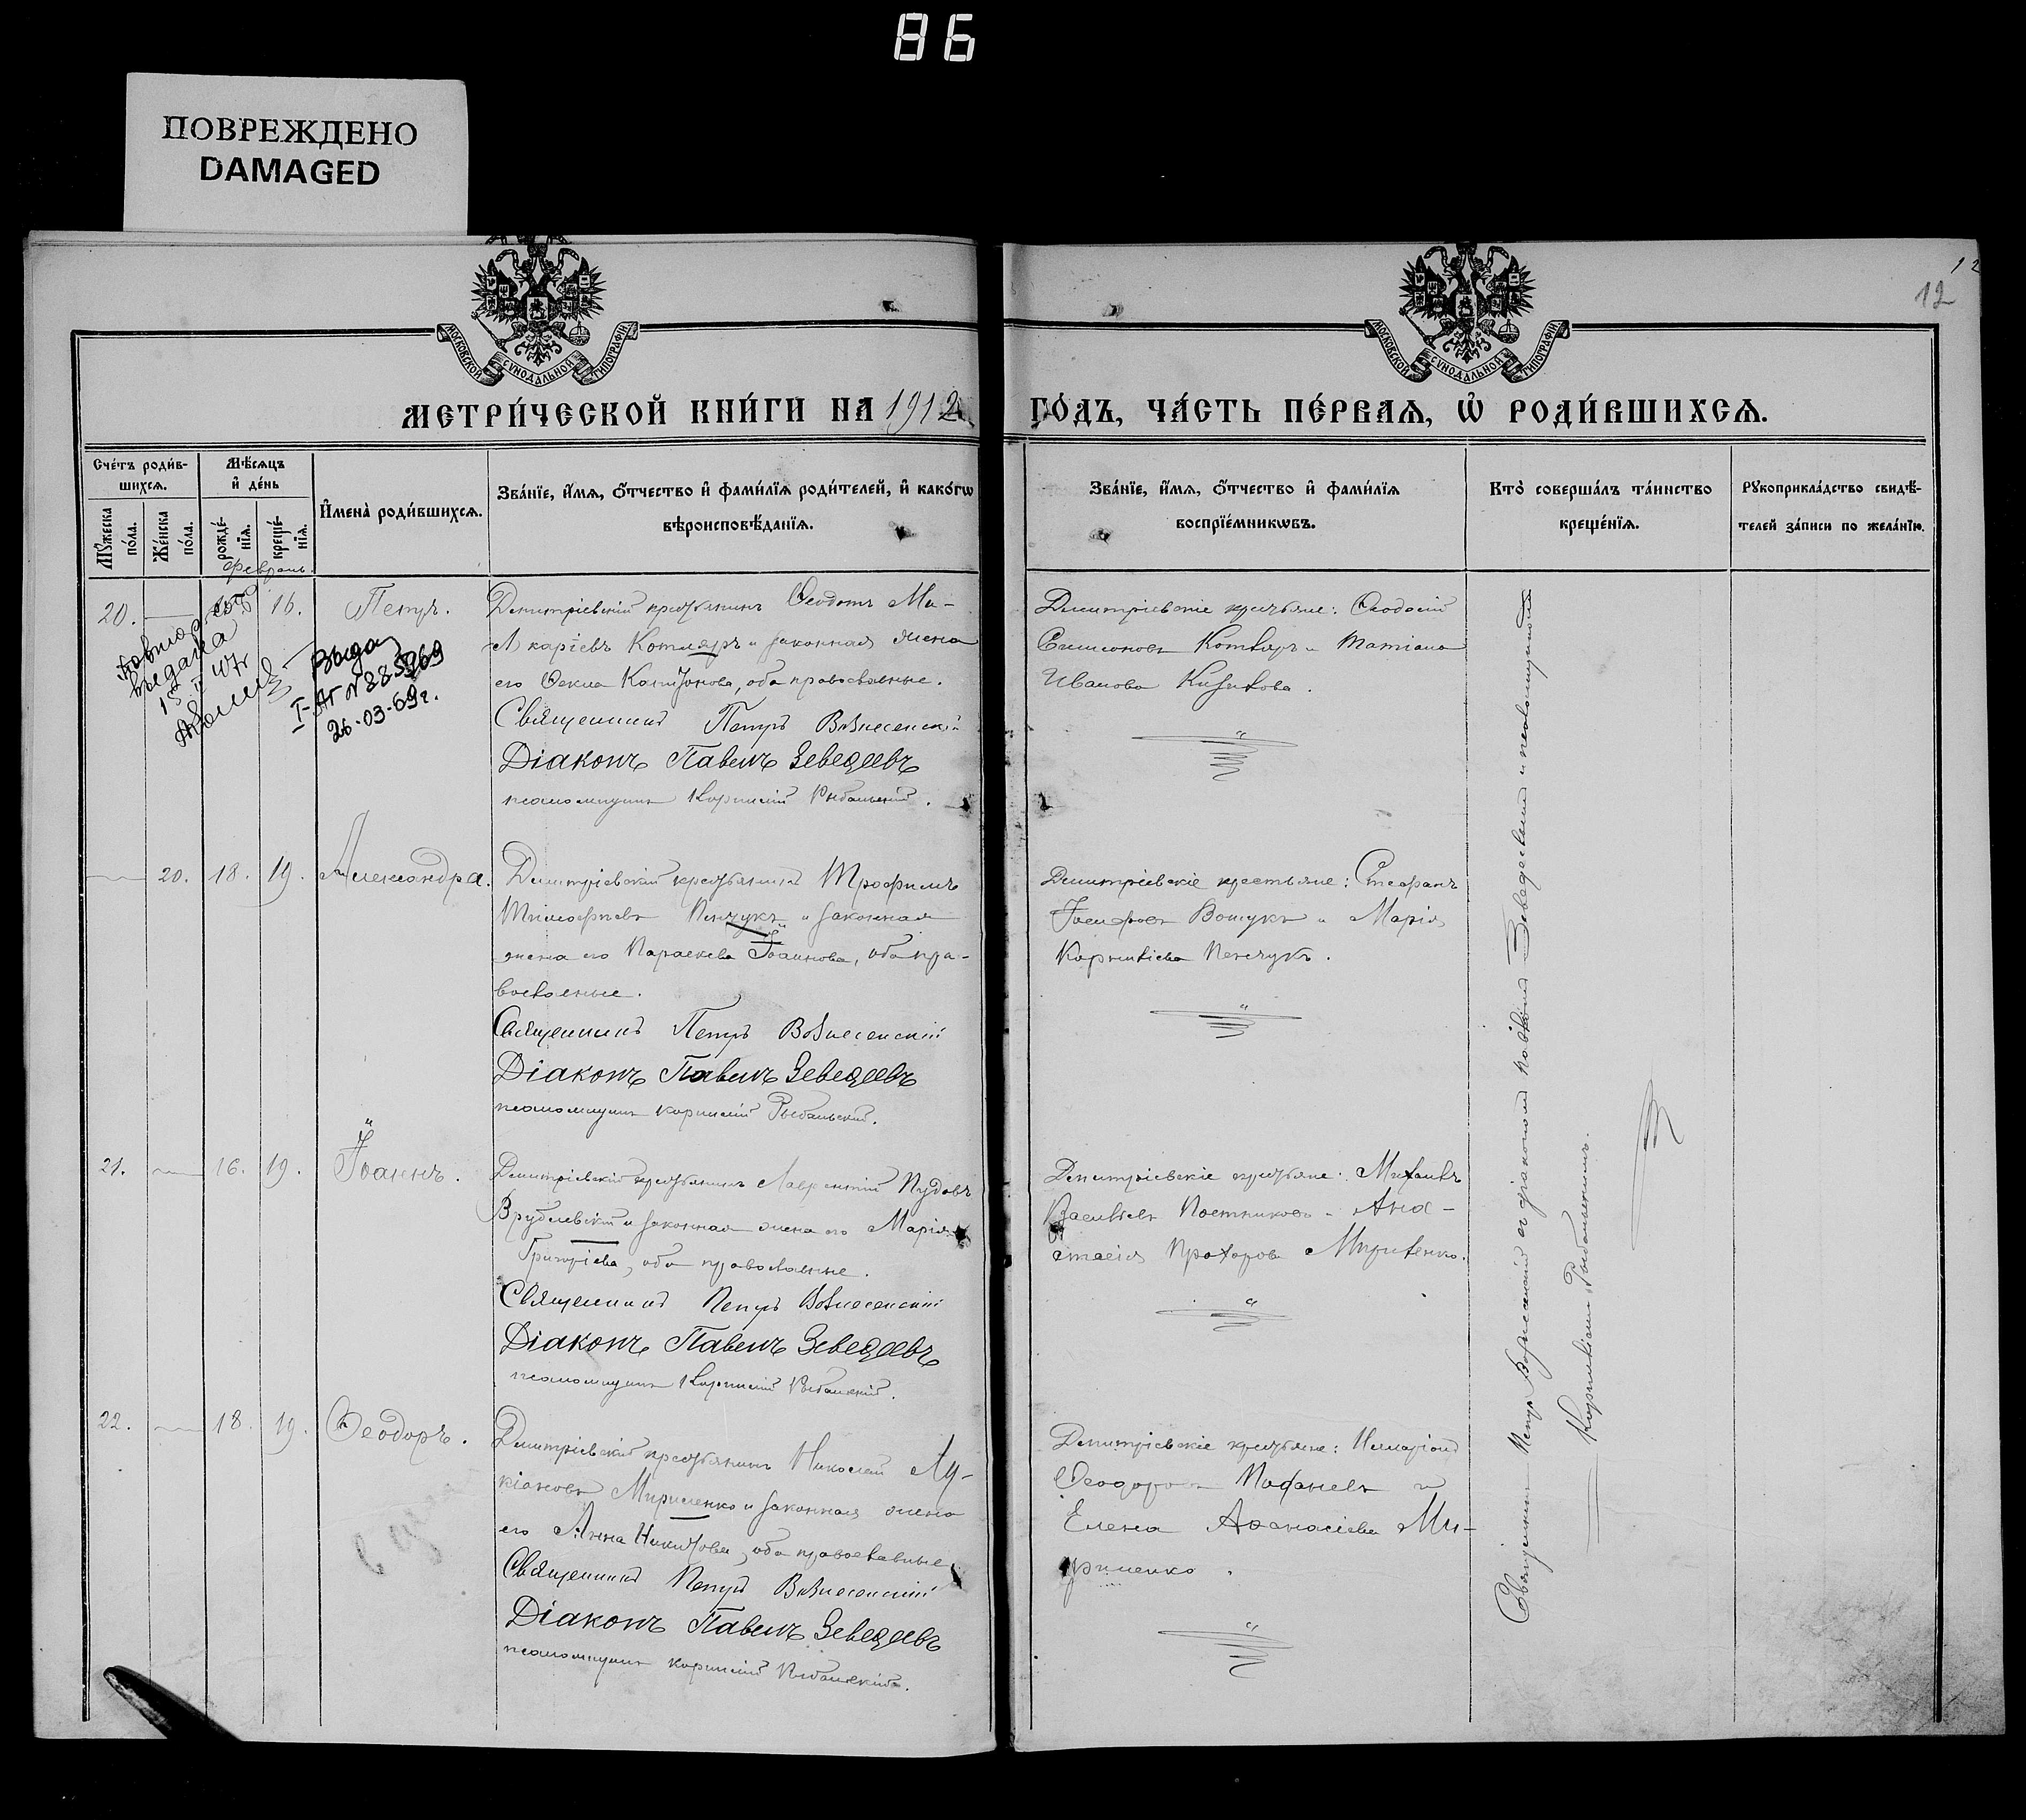 86
ПОВРЕЖДЕНО
DAMAGED
МОСКОВСКОЙ СѴНОДАЛЬНОЙ ТИПОГРАФІИ
МОСКОВСКОЙ СѴНОДАЛЬНОЙ ТИПОГРАФІИ
12
12
МЕТРИ́ЧЕСКОЙ КНИ́ГИ НА 1912
ГО́ДЪ, ЧА́СТЬ ПЕ́РВАѦ, Ѡ РОДИ́ВШИХСѦ.
Сче́тъ роди́в-
шихсѧ.
Мꙋ́жеска по́ла.
Же́нска по́ла.
Мѣ́сѧцъ
и҆ де́нь
рожде́-
нїѧ.
креще́-
нїѧ.
И҆мена̀ роди́вшихсѧ.
Зва́нїе, и҆́мѧ, ѻ҆́тчество и҆ фами́лїѧ роди́телей, и҆ како́гѡ
вѣроисповѣ́данїѧ.
Зва́нїе, и҆́мѧ, ѻ҆́тчество и҆ фами́лїѧ
воспрїе́мникѡвъ.
Кто̀ соверша́лъ та́инство
креще́нїѧ.
Рꙋкоприкла́дство свидѣ́-
телей за́писи по жела́нїю.
Февраль.
20. 16. Петръ.
Димитріевскій крестьянинъ Ѳеодотъ Ма-
каріевъ Котляръ и законная жена
его Ѳекла Капитонова, оба православные.
Священникъ Петръ Вознесенскій
Діаконъ Павелъ Зеведеевъ
псаломщикъ Корнилій Рыбальскій.
выдана
15 II 47г
Выдан
I-АГ №
26-03-69г.
Димитріевскіе крестьяне: Ѳеодосій
Симеоновъ Котляръ и Татіана
Иванова
20. 18. 19. Александра.
Димитріевскій крестьянинъ Трофимъ
Тимофіевъ Пенчукъ и законная
жена его Параскева Іоаннова, оба пра-
вославные.
Священникъ Петръ Вознесенскій
Діаконъ Павелъ Зеведеевъ
псаломщикъ Корнилій Рыбальскій.
Димитріевскіе крестьяне: Стефанъ
Іосифовъ и Марія
Корниліева Пенчукъ.
21. 16. 19. Іоаннъ.
Димитріевскій крестьянинъ Лаврентій Пудовъ
Врублевскій и законная жена его Марія
Григоріева, оба православные.
Священникъ Петръ Вознесенскій
Діаконъ Павелъ Зеведеевъ
псаломщикъ Корнилій Рыбальскій.
Димитріевскіе крестьяне: Михаилъ
Васильевъ Постниковъ и Ана-
стасія Прохорова Мириленко.
22. 18. 19. Ѳеодоръ.
Димитріевскій крестьянинъ Николай Лу-
кіановъ Мириленко и законная жена
его Анна Никитова, оба православные.
Священникъ Петръ Вознесенскій
Діаконъ Павелъ Зеведеевъ
псаломщикъ Корнилій Рыбальскій.
Димитріевскіе крестьяне: Илларіонъ
Ѳеодоровъ и
Елена Аѳанасіева Ми-
риленко.
Священникъ Петръ Вознесенскій съ діакономъ Павломъ Зеведеевымъ и псаломщикомъ
Корниліемъ Рыбальскимъ.